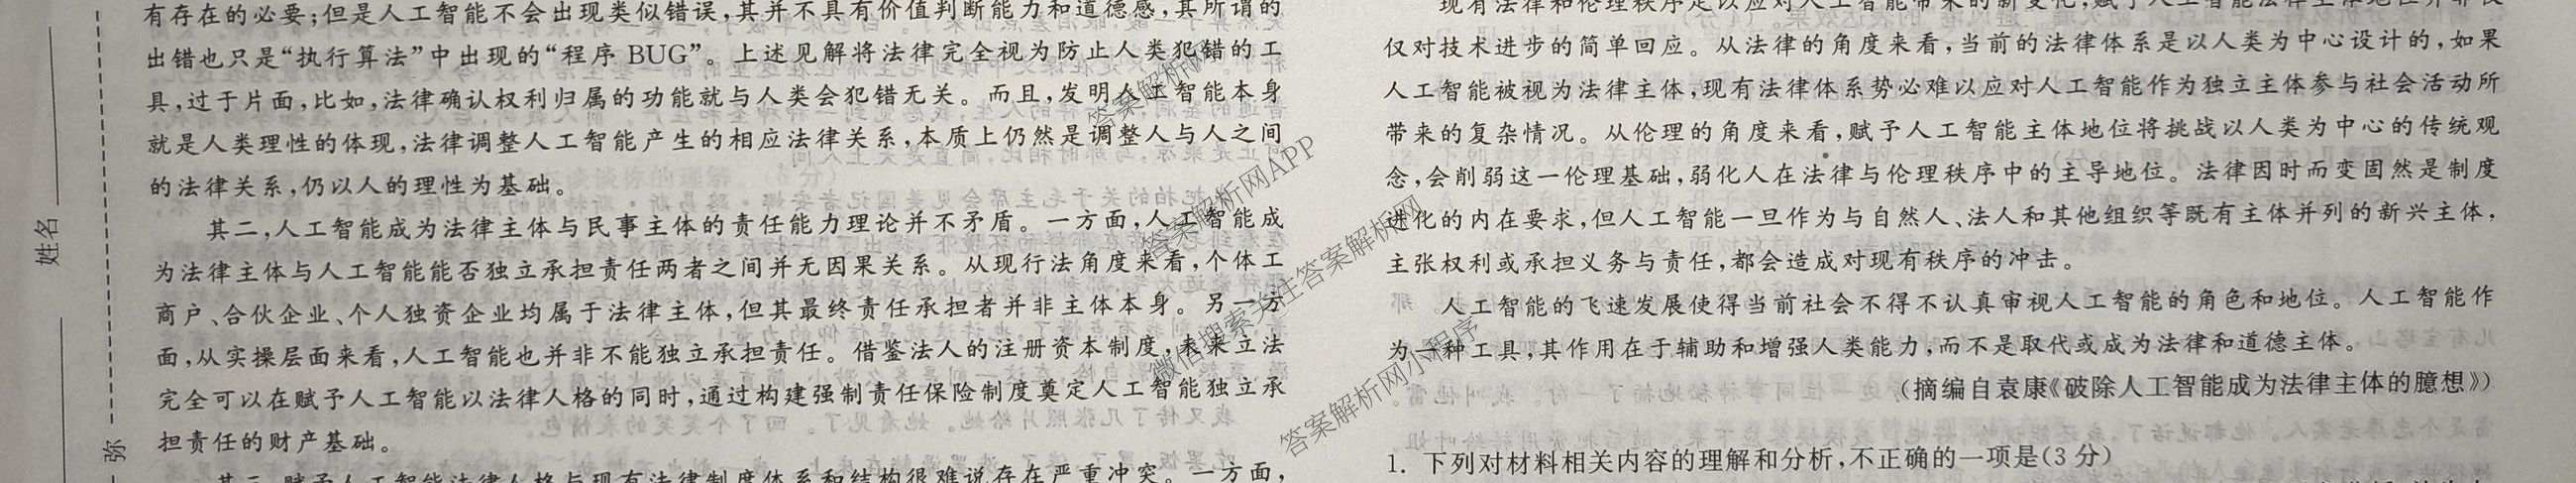 有存在的必要；但是人工智能不会出现类似错误，其并不具有价值判断能力和道德感，其所谓的
出错也只是“执行算法”中出现的“程序 BUG”。上述见解将法律完全视为防止人类犯错的工
具，过于片面，比如，法律确认权利归属的功能就与人类会犯错无关。而且，发明人工智能本身
就是人类理性的体现，法律调整人工智能产生的相应法律关系，本质上仍然是调整人与人之间
的法律关系，仍以人的理性为基础。
其二，人工智能成为法律主体与民事主体的责任能力理论并不矛盾。一方面，人工智能成
为法律主体与人工智能能否独立承担责任两者之间并无因果关系。从现行法角度来看，个体工
商户、合伙企业、个人独资企业均属于法律主体，但其最终责任承担者并非主体本身。另一方
面，从实操层面来看，人工智能也并非不能独立承担责任。借鉴法人的注册资本制度，未来立法
完全可以在赋予人工智能以法律人格的同时，通过构建强制责任保险制度奠定人工智能独立承
担责任的财产基础。
其三，赋予人工智能法律人格与现有法律制度体系和结构很难说存在严重冲突。一方面，
现有法律和伦理秩序足以应对人工智能带来的新变化，赋予人工智能法律主体地位并非仅
仅对技术进步的简单回应。从法律的角度来看，当前的法律体系是以人类为中心设计的，如果
人工智能被视为法律主体，现有法律体系势必难以应对人工智能作为独立主体参与社会活动所
带来的复杂情况。从伦理的角度来看，赋予人工智能主体地位将挑战以人类为中心的传统观
念，会削弱这一伦理基础，弱化人在法律与伦理秩序中的主导地位。法律因时而变固然是制度
进化的内在要求，但人工智能一旦作为与自然人、法人和其他组织等既有主体并列的新兴主体，
主张权利或承担义务与责任，都会造成对现有秩序的冲击。
人工智能的飞速发展使得当前社会不得不认真审视人工智能的角色和地位。人工智能作
为一种工具，其作用在于辅助和增强人类能力，而不是取代或成为法律和道德主体。
（摘编自袁康《破除人工智能成为法律主体的臆想》）
1. 下列对材料相关内容的理解和分析，不正确的一项是（3 分）
姓名
弥
答案解析网
答案解析网APP
微信搜索关注答案解析网
答案解析网小程序